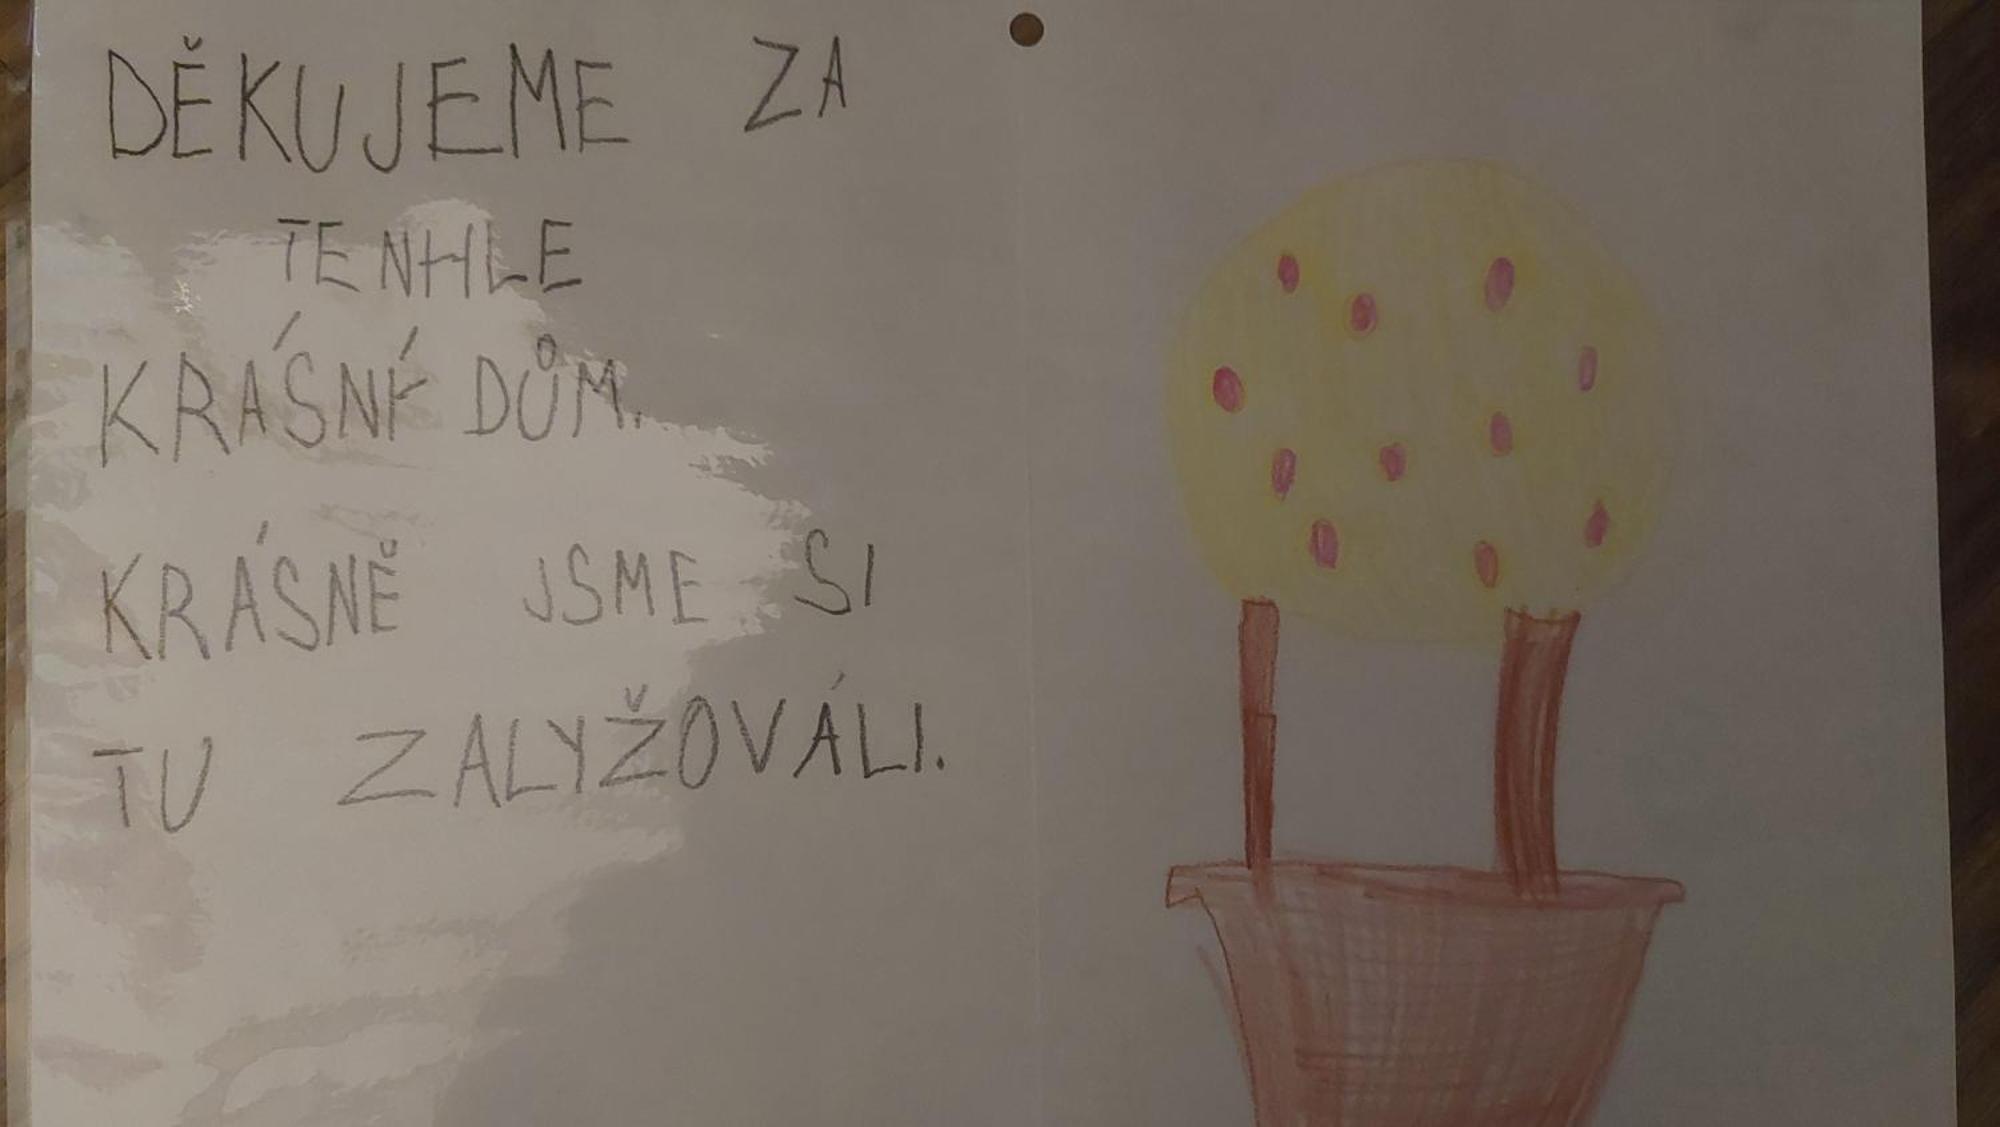 DĚKUJEME ZA
TENHLE
KRÁSNÝ DŮM.
KRÁSNĚ JSME SI
TU ZALYŽOVÁLI.